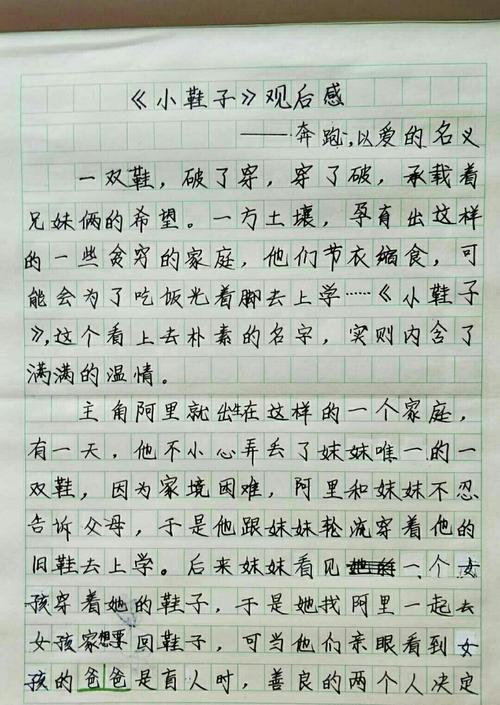 《小鞋子》观后感
——奔跑，以爱的名义
一双鞋，破了穿，穿了破，承载着
兄妹俩的希望。一方土壤，孕育出这样
的一些贫穷的家庭，他们节衣缩食，可
能会为了吃饭光着脚去上学……《小鞋子
》，这个看上去朴素的名字，实则内含了
满满的温情。
主角阿里就出生在这样的一个家庭，
有一天，他不小心弄丢了妹妹唯一的一
双鞋，因为家境困难，阿里和妹妹不忍
告诉父母，于是他跟妹妹轮流穿着他的
旧鞋去上学。后来妹妹看见一个女
孩穿着她的鞋子，于是她找阿里一起去
女孩家想要回鞋子，可当他们亲眼看到女
孩的爸爸是盲人时，善良的两个人决定